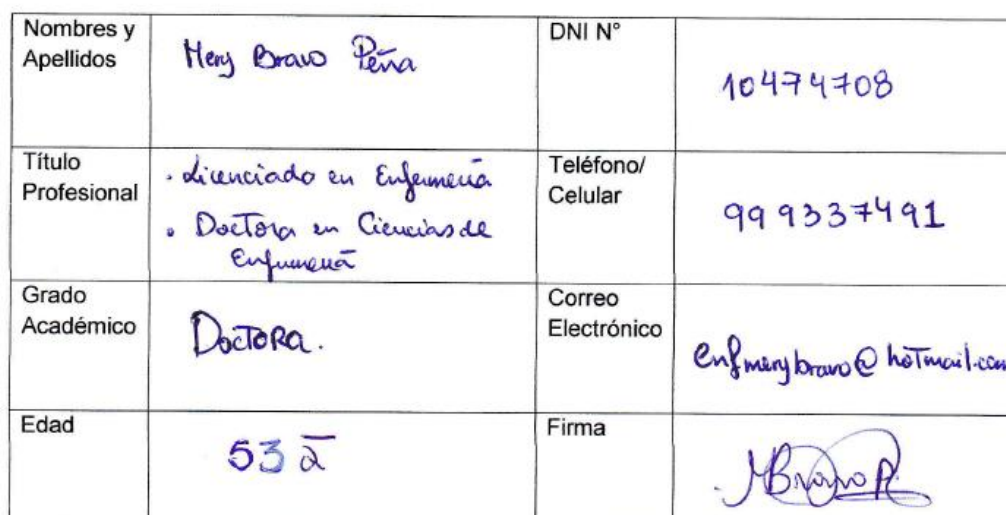 Nombres y Apellidos
Mery Bravo Peña
DNI N°
10474708
Título Profesional
. Licenciado en Enfermería
. Doctora en Ciencias de
Enfermería
Teléfono/ Celular
999337491
Grado Académico
Doctora.
Correo Electrónico
enfmerybravo@hotmail.com
Edad
53 a
Firma
MBravoP.